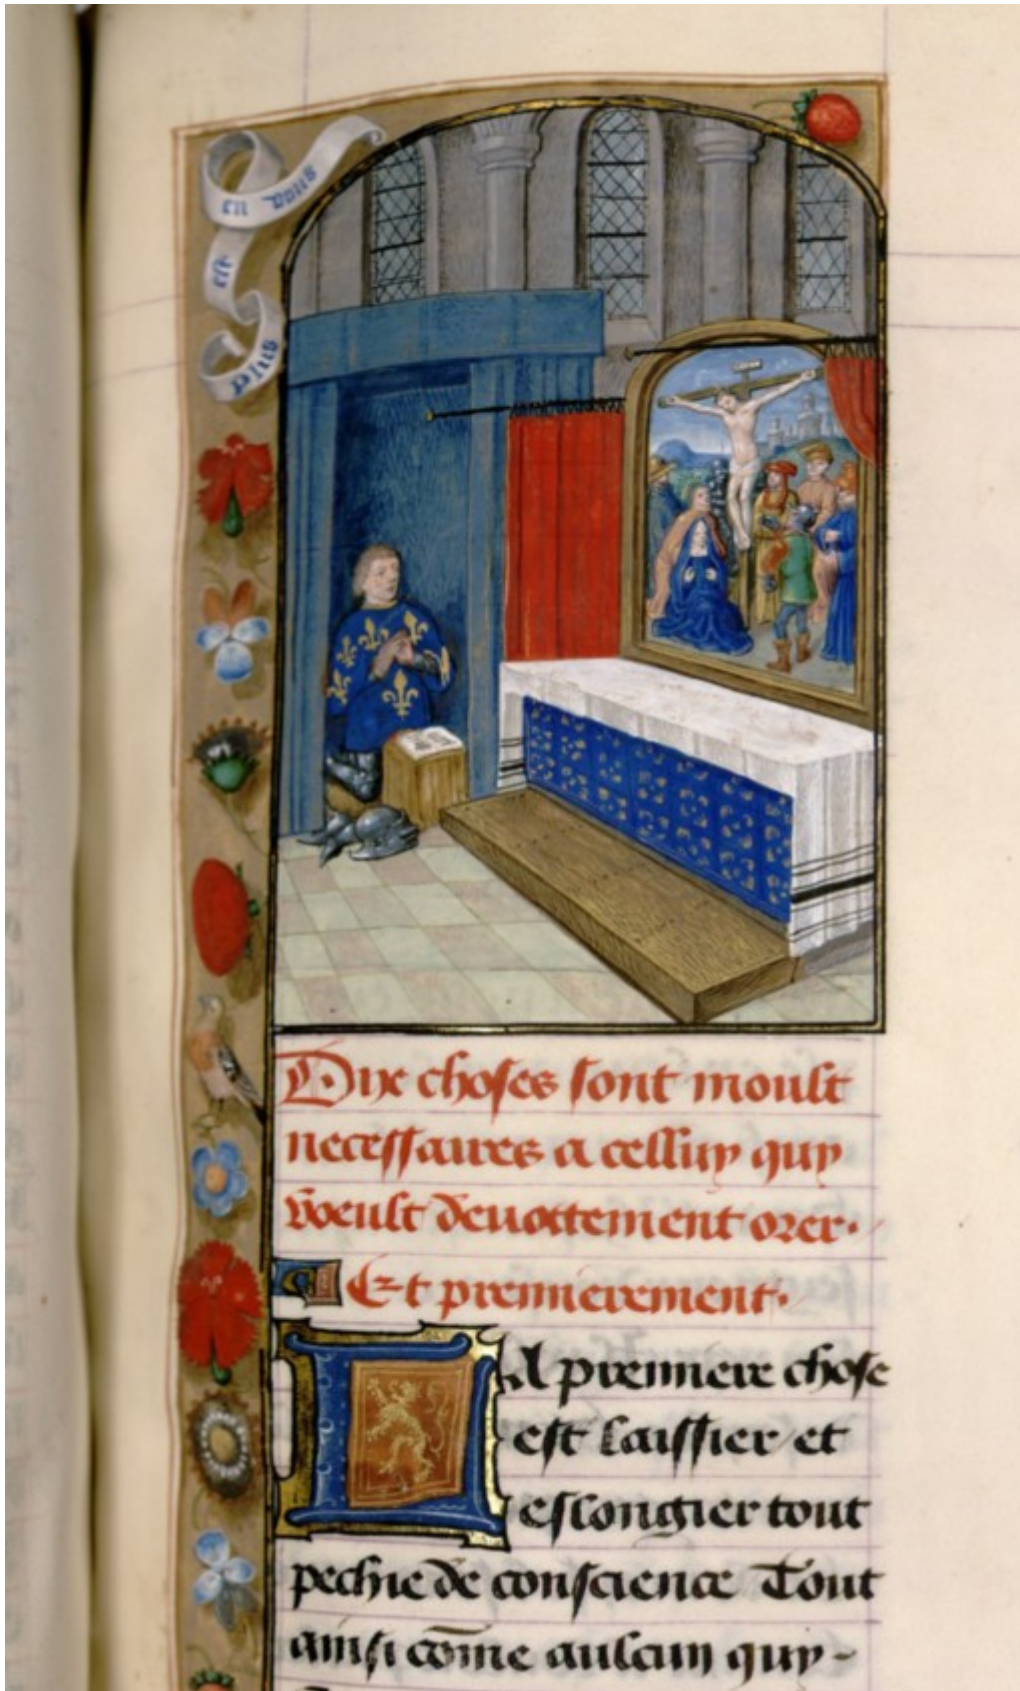 en vous
est
plus
Dix choses sont moult
necessaires a celluy quy
voeult deuottement orer.
Et premierement.
La premiere chose
est laissier et
eslongier tout
pechie de conscience Tout
ainsi co͞me aulcun quy-